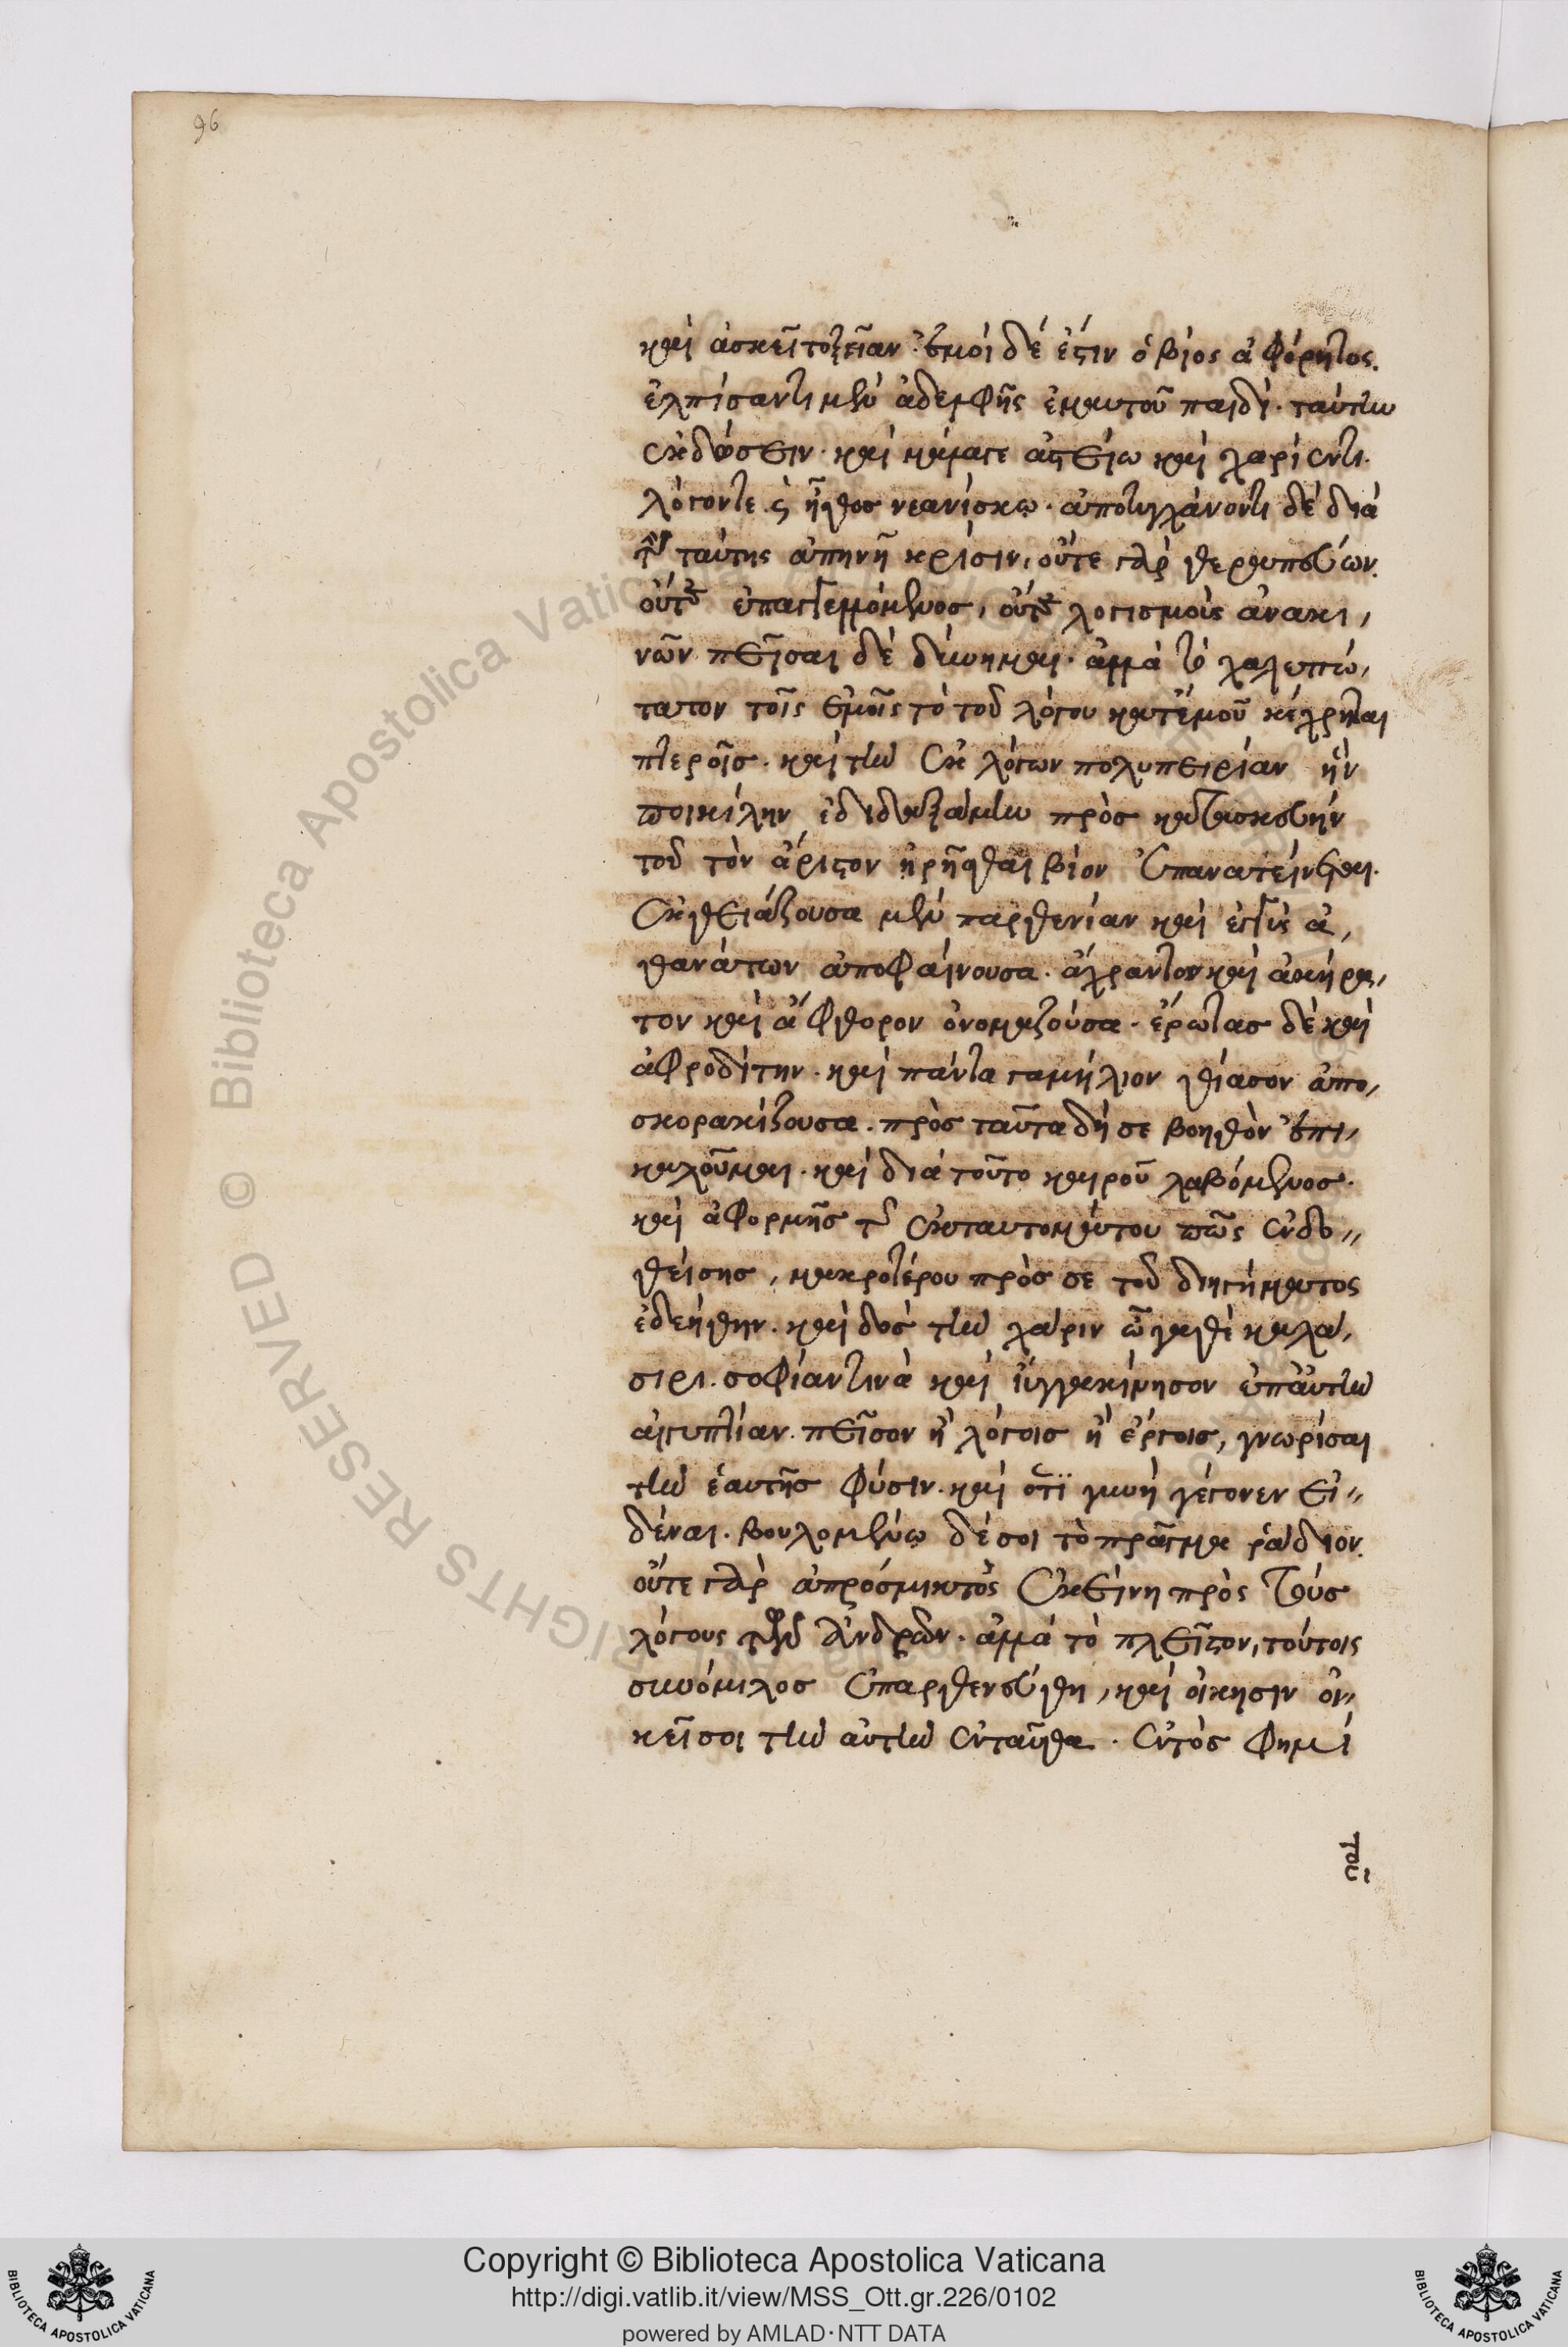 96
καὶ ἀσκεῖ τοξείαν. ἐμοὶ δέ ἐστιν ὁ βίος ἀφόρητος.
ἐλπίσαντι μὲν ἀδελφῆς ἐμαυτοῦ παιδὶ. ταύτην
ἐκδώσειν. καὶ μάλα γε ἀστείω καὶ χαρίεντι.
λόγον τε ϛ ἦθος νεανίσκῳ. ἀποτυγχάνοντι δὲ διὰ
τὴν ταύτης ἀπηνῆ κρίσιν, οὔτε γὰρ θεραπεύων.
οὔτε ἐπαγγελλόμενος, οὔτε λογισμοὺς ἀνακι,
νῶν πεῖσαι δὲ δύνημαι. ἀλλὰ τὸ χαλεπώ,
τατον τοῖς ἐμοῖς τὸ τοῦ λόγου κατ' ἐμοῦ κέχρηται
πτεροῖς. καὶ τὴν ἐκ λόγων πολυπειρίαν ἣν
ποικίλην ἐδιδαξάμην πρὸς κατασκευὴν
τοῦ τὸν ἄριστον ἡρῆσθαι βίον ἐπανατείνεται.
ἐκθειάζουσα μὲν παρθενίαν καὶ ἐγγὺς ἀ,
θανάτων ἀποφαίνουσα. ἄχραντον καὶ ἀκήρα,
τον καὶ ἄφθορον ὀνομάζουσα. ἔρωτας δὲ καὶ
ἀφροδίτην. καὶ πάντα γαμήλιον θίασον ἀπο,
σκορακίζουσα. πρὸς ταῦτα δή σε βοηθὸν ἐπι,
καλοῦμαι. καὶ διὰ τοῦτο καιροῦ λαβόμενος.
καὶ ἀφορμῆς τῆς ἐκ ταυτομάτου πῶς ἐνδο,,
θείσης, μακροτέρου πρὸς σε τοῦ διηγήματος
ἐδεήθην. καὶ δὸς τὴν χάριν ὦ 'γαθὲ καλά,
σιρι. σοφίαν τινὰ καὶ ἴυγγα κίνησον ἐπ' αὐτὴν
αἰγυπτίαν. πεῖσον ἢ λόγοις ἢ ἔργοις, γνωρίσαι
τὴν ἑαυτῆς φύσιν. καὶ ὅτϊ γυνὴ γέγονεν εἰ,,
δέναι. βουλομένῳ δέ σοι τὸ πρᾶγμα ῥάδιον.
οὔτε γὰρ ἀπρόσμικτος ἐκείνη πρὸς τοὺς
λόγους τῶν ἀνδρῶν. ἀλλὰ τὸ πλεῖστον, τούτοις
συνόμιλος ἐπαρθενεύθη, καὶ οἴκησιν οἰ,,
κεῖ σοι τὴν αὐτὴν ἐνταῦθα. ἐντὸς φημὶ
Copyright © Biblioteca Apostolica Vaticana
http://digi.vatlib.it/view/MSS_Ott.gr.226/0102
powered by AMLAD·NTT DATA